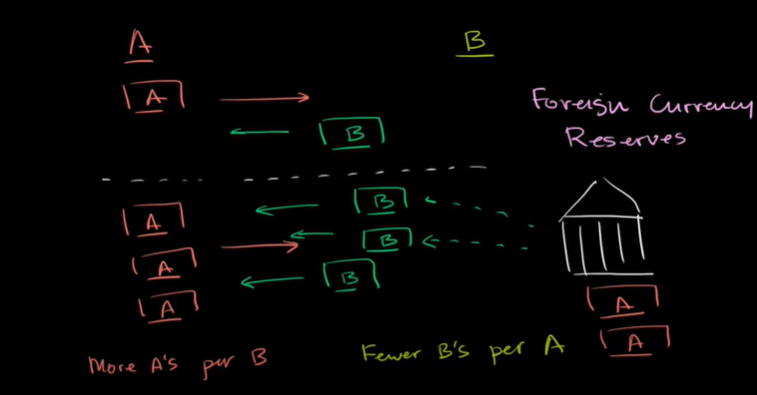 A
B
A
B
Foreign Currency
Reserves
A
B
A
B
A
B
A
A
More A's per B
Fewer B's per A